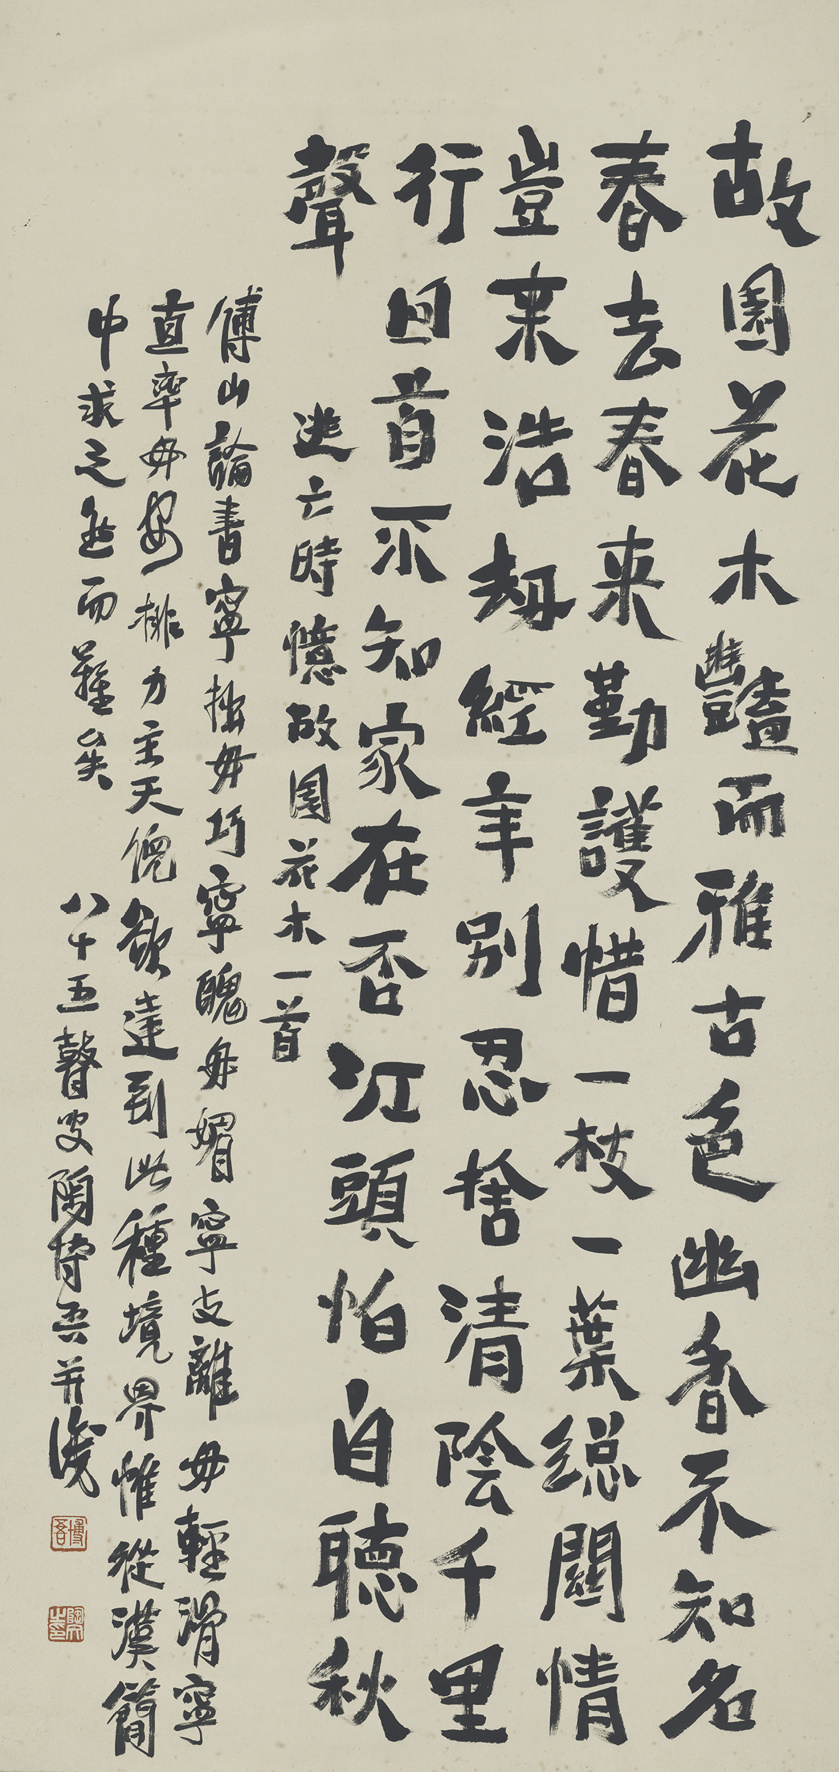 故園花木豔而雅古色幽香不知名
春去春來勤護惜一枝一葉總關情
豈来浩劫經年別忍捨清陰千里
行回首不知家在否江頭怕自聽秋
聲
逃亡時憶故園花木一首
傅山論書寧拙毋巧寧醜毋媚寧支離毋輕滑寧
直率毋安排力主天倪欲達到此種境界惟從漢簡
中求之然而難矣
八十五瞽叟陶博吾并識
博吾